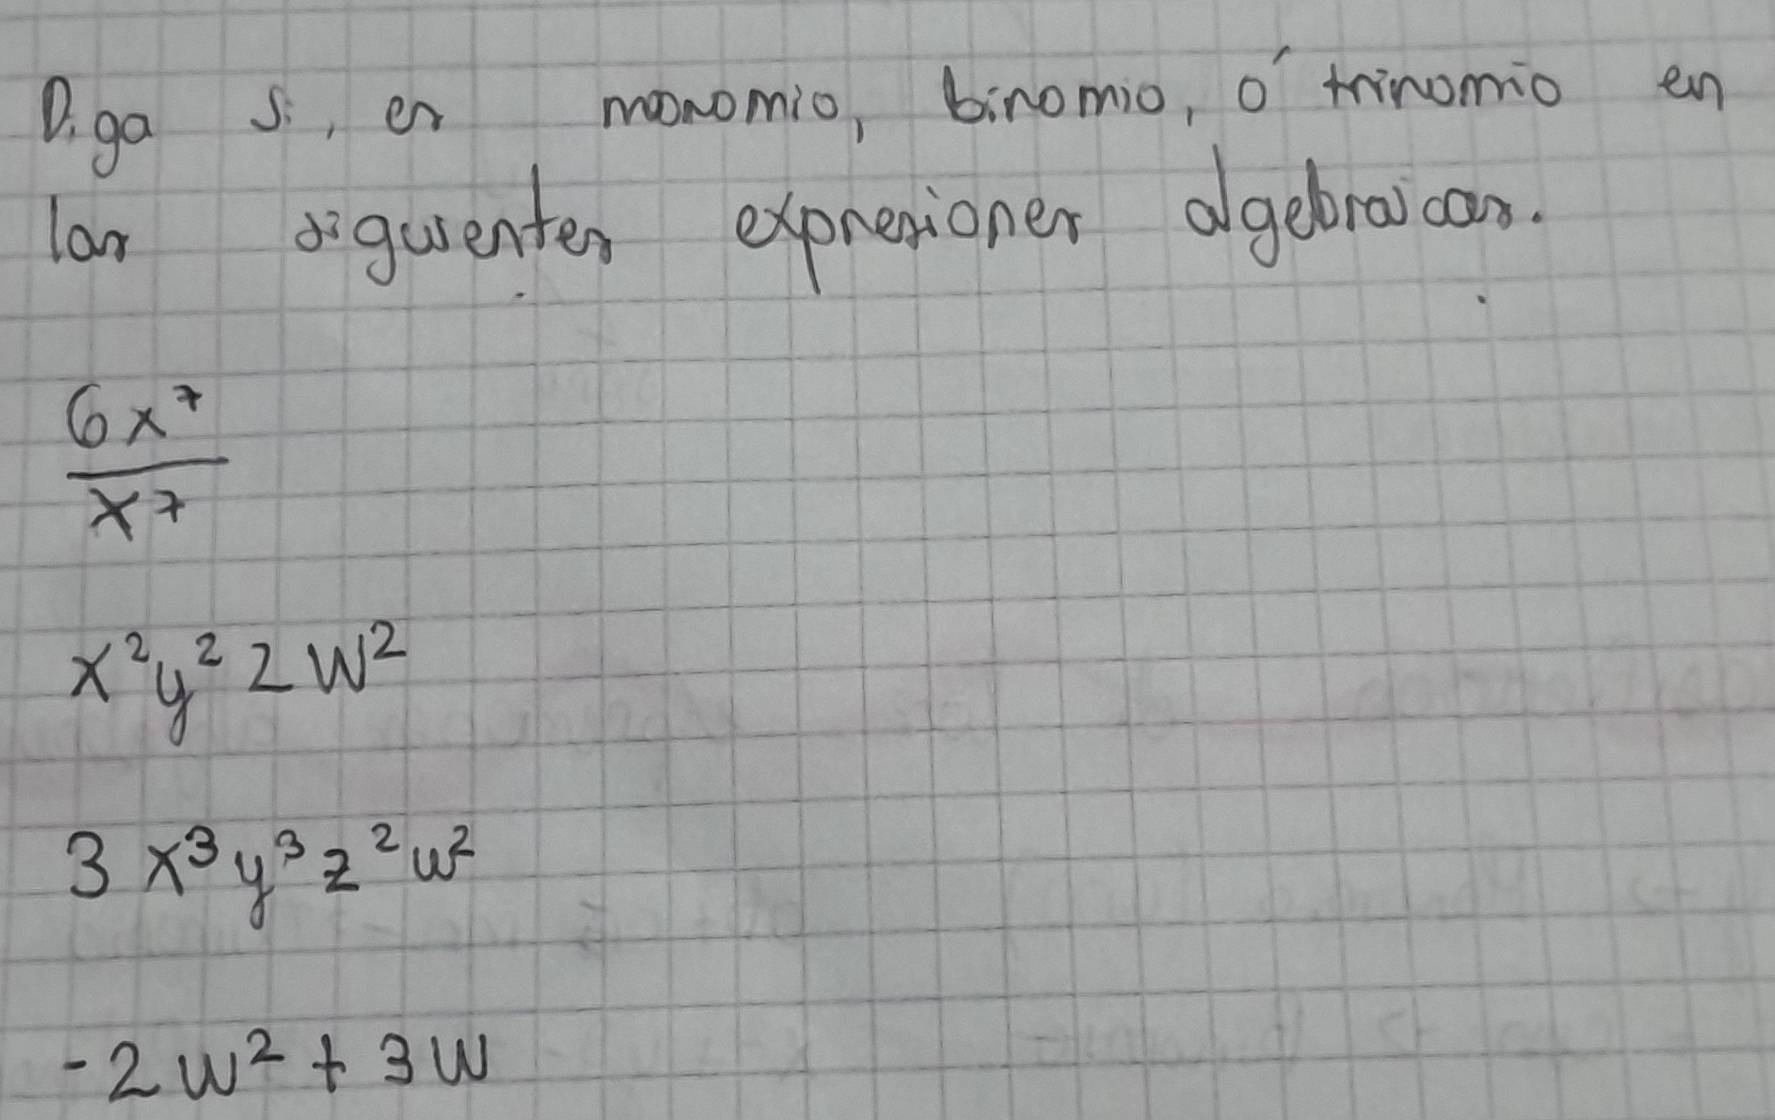 Diga si, es monomio, binomio, ó trinomio en
las siguientes expresiones algebraicas.
6x⁷
x⁷
x²y² 2 w²
3 x³ y³ z² w²
-2w² + 3w